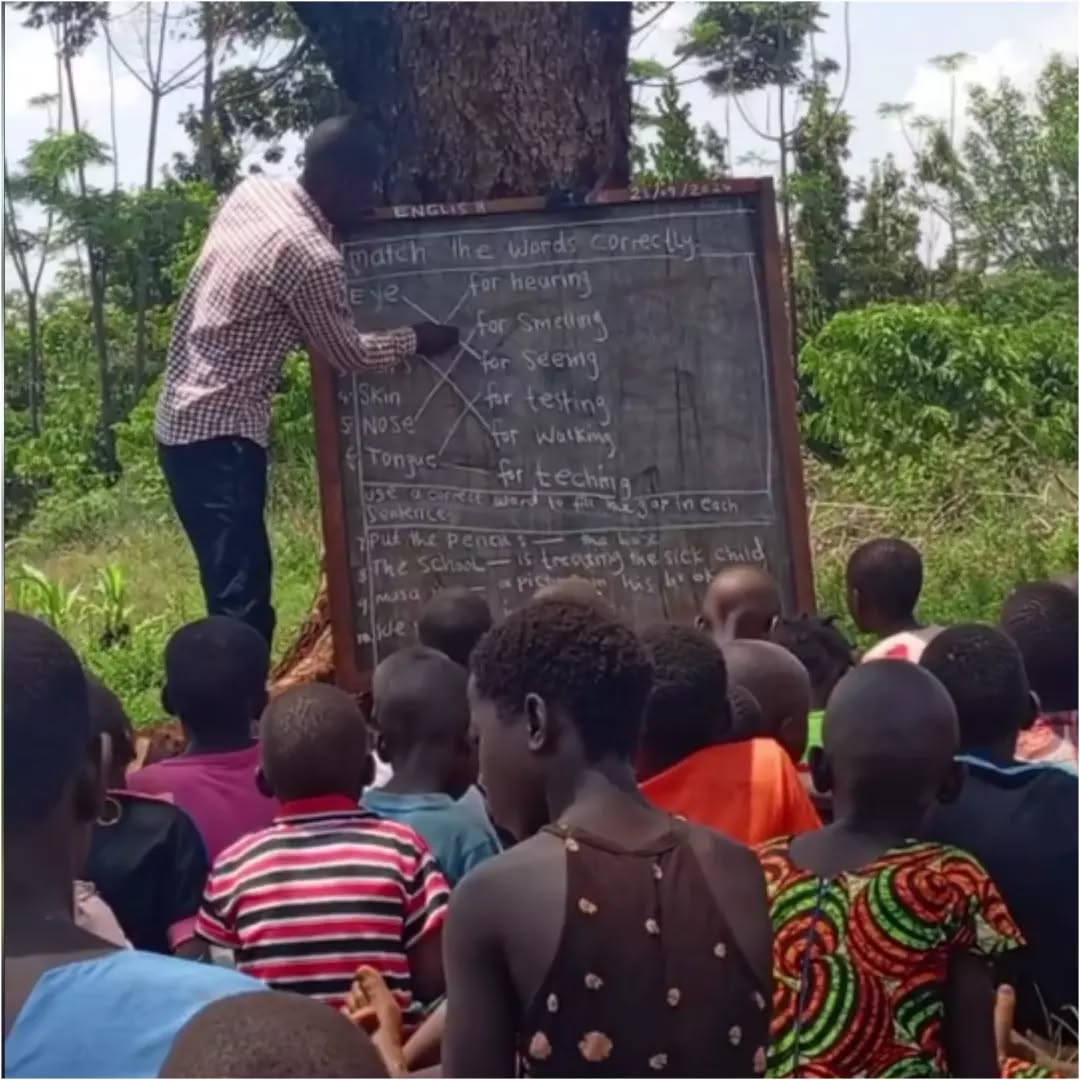 ENGLISH 21/09/2024
match the words correctly.
Eye for hearing
for smelling
for seeing
4. Skin for testing
5. Nose for walking
6. Tongue for teching
use a correct word to fill the gap in each
Sentence.
7 Put the pencils — the box
8 The School — is treating the sick child
9. musa a his
10. We